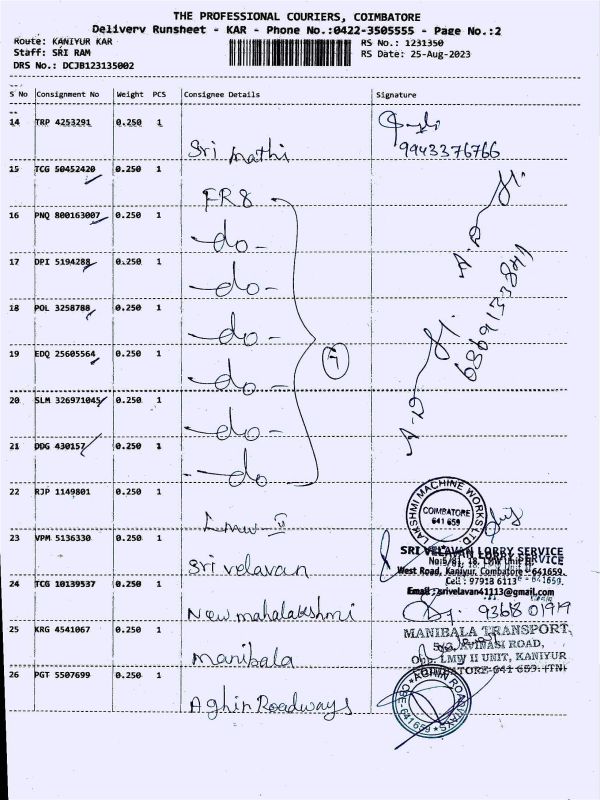 THE PROFESSIONAL COURIERS, COIMBATORE
Delivery Runsheet - KAR - Phone No.:0422-3505555 - Page No.:2
Route: KANIYUR KAR
RS No.: 1231350
Staff: SRI RAM
RS Date: 25-Aug-2023
DRS No.: DCJB123135002
S No Consignment No Weight PCS Consignee Details Signature
14 TRP 4253291 0.250 1
Sri mathi 9943376766
15 TCG 50452420 0.250 1
FR8
16 PNQ 800163007 0.250 1
-do-
17 DPI 5194288 0.250 1
-do-
6369133841
18 POL 3258788 0.250 1
-do-
19 EDQ 25605564 0.250 1
-do-
20 SLM 326971045 0.250 1
-do-
21 DDG 430157 0.250 1
-do
22 RJP 1149801 0.250 1
Lmw-II
LAKSHMI MACHINE WORKS LTD
COIMBATORE
641 659
23 VPM 5136330 0.250 1
Sri velavan
SRI VELAVAN LORRY SERVICE
West Road, Kaniyur, Coimbatore - 641659.
Cell : 97918 6113
Email : srivelavan41113@gmail.com
24 TCG 10139537 0.250 1
New mahalakshmi
93688 01919
25 KRG 4541067 0.250 1
manibala
MANIBALA TRANSPORT,
AVINASI ROAD,
Opp. LMW II UNIT, KANIYUR
COIMBATORE-641 659. (TN)
26 PGT 5507699 0.250 1
Aghin Roadways
AGHIN ROADWAYS
CBE-641659